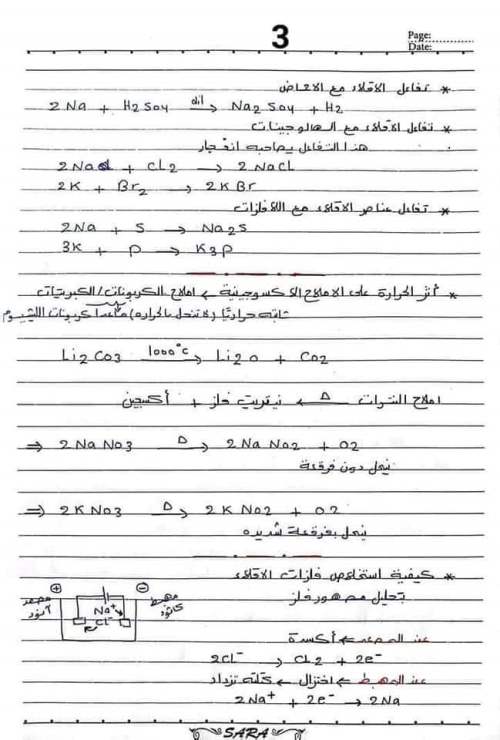 3
Page:
Date:
* تفاعل الاقلاء مع الاحماض
2Na + H2SO4 → Na2SO4 + H2
* تفاعل الاقلاء مع الهالوجينات
هذا التفاعل يصاحبه انفجار
2Na + Cl2 → 2NaCl
2K + Br2 → 2KBr
* تفاعل عناصر الاقلاء مع اللافلزات
2Na + S → Na2S
3K + P → K3P
* أثر الحرارة على الاملاح الاكسوجينية ← املاح الكربونات/الكبريتات
ثابته حراريًا (لا تنحل بالحراره) ماعدا كربونات الليثيوم
Li2CO3 1000°C → Li2O + CO2
املاح النترات Δ ← نيتريت فلز + أكسجين
⇒ 2NaNO3 Δ → 2NaNO2 + O2
ينحل دون فرقعة
⇒ 2KNO3 Δ → 2KNO2 + O2
ينحل بفرقعة شديده
* كيفية استخلاص فلزات الاقلاء
بتحليل مصهور فلز
+ −
مصعد آنود
مهبط كاثود
Na+
Cl−
عند المصعد ← أكسدة
2Cl− → Cl2 + 2e−
عند المهبط ← اختزال ← كتلته تزداد
2Na+ + 2e− → 2Na
SARA